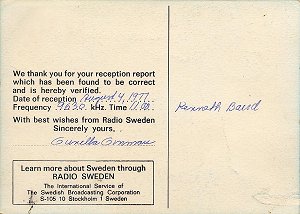 We thank you for your reception report
which has been found to be correct
and is hereby verified.
Date of reception August 4, 1977
Frequency kHz. Time
With best wishes from Radio Sweden
Sincerely yours,
Gunilla
Kenneth Baird
Learn more about Sweden through
RADIO SWEDEN
The International Service of
The Swedish Broadcasting Corporation
S-105 10 Stockholm 1 Sweden